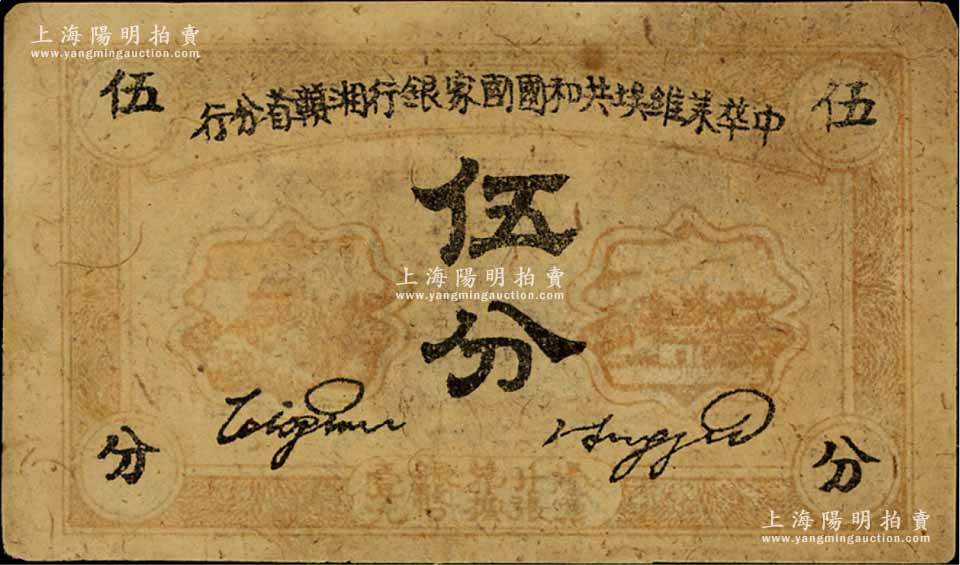 上海陽明拍賣
www.yangmingauction.com
中华苏維埃共和國國家銀行湘贛省分行
伍
伍
伍
分
上海陽明拍賣
www.yangmingauction.com
分
分
上海陽明拍賣
www.yangmingauction.com